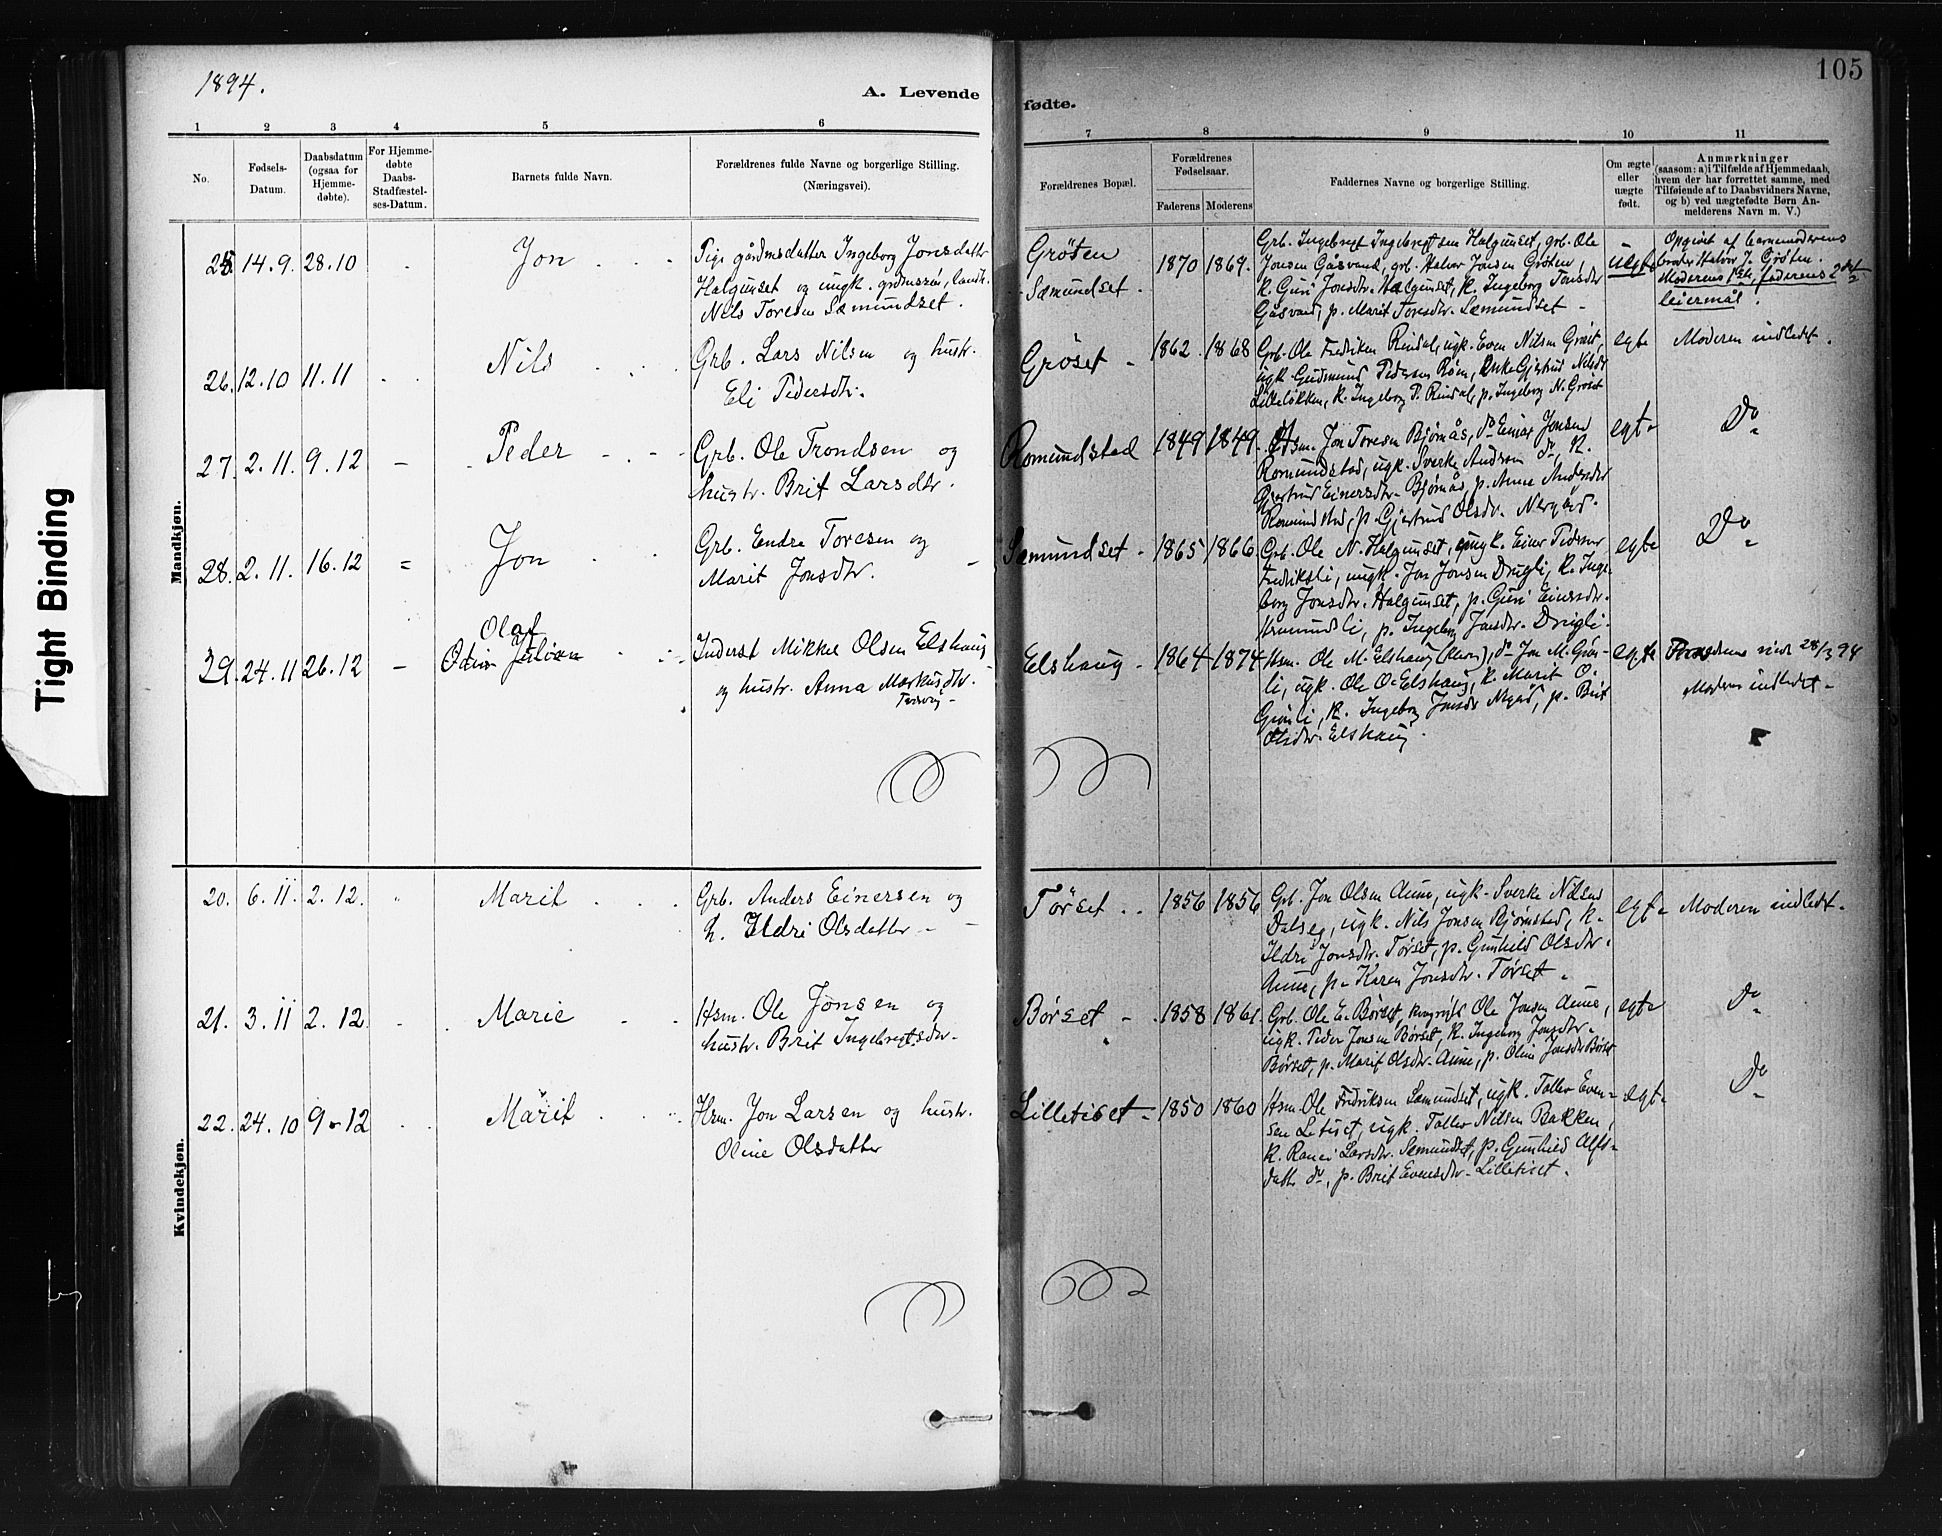 1894.
105
A. Levende
fødte.
1 2 3 4 5 6 7 8 9 10 11
No.
Fødsels-
Datum.
Daabsdatum
(ogsaa for
Hjemme-
døbte).
For Hjemme-
døbte
Daabs-
Stadfæstel-
ses-Datum.
Barnets fulde Navn.
Forældrenes fulde Navne og borgerlige Stilling.
(Næringsvei).
Forældrenes Bopæl.
Forældrenes
Fødselsaar.
Faderens Moderens
Faddernes Navne og borgerlige Stilling.
Om ægte
eller
uægte
født.
Anmærkninger
(saasom: a) i Tilfælde af Hjemmedaab,
hvem der har forrettet samme, med
Tilføiende af to Daabsvidners Navne,
og b) ved uægtefødte Børn An-
melderens Navn m. V.)
Mandkjøn.
25. 14.9. 28.10 Jon
Pige gårdmsdatter Ingeborg Jonsdatter
Halgunset og ungk. grdmssøn, landh.
Nils Toresen Sæmundset.
Grøten
Sæmundset.
1870 1869.
Grb. Ingebregt Ingebregtsen Halgunset, grb. Ole
Jonsen Gåsvand, grb. Halvor Jonsen Grøten,
K. Guri Jonsdtr. Halgunset, K. Ingeborg Jonsdtr
Gåsvand, p. Marit Toresdtr. Sæmundset
uegte
Opgivet af barnemoderens
broder Halvor J. Grøten.
Moderens 1ste, faderens 2det
leiermål.
26. 12.10 11.11 Nils
Grb. Lars Nilsen og hustr.
Eli Pedersdtr.
Grøset
1862. 1868
Grb. Ole Fredriksen Rindal, ugk. Even Nilsen Grøset,
ugk. Gudmund Pedersen Røen, Enke Gjertrud Nilsdtr
Lilleløkken, K. Ingeborg P. Rindal, p. Ingeborg N. Grøset
egte
Moderen indledet.
27. 2.11. 9.12 Peder
Grb. Ole Trondsen og
hustr. Brit Larsdtr.
Romundstad
1849 1849.
Hsm. Jon Toresen Bjørnås, do Einar Jonsen
Romundstad, ugk. Sverke Andersen do, K.
Gjertrud Einersdtr. Bjørnås, p. Anne Andersdtr
Romundstad, p. Gjertrud Olsdtr. Nergård.
egte
Do
28. 2.11. 16.12 Jon
Grb. Endre Toresen og
Marit Jonsdtr.
Sæmundset
1865 1866
Grb. Ole N. Halgunset, ungk. Einer Pedersen
Fredriksli, ungk. Jon Jonsen Drugli, K. Inge-
borg Jonsdtr. Halgunset, p. Guri Einersdtr.
p. Ingeborg Jonsdtr. Drugli.
egte
Do
Olaf
29. 24.11 26.12 Odin Julian
Inderst Mikkel Olsen Elshaug
og hustr. Anna Markusdtr.
Elshaug
1864 1874
Hsm. Ole M. Elshaug, do Jon M. Grøn-
li, ugk. Ole O. Elshaug, K. Marit O.
Grønli, K. Ingeborg Jonsdtr p. Brit
Olsdtr. Elshaug.
egte
28/3 94
Moderen indledet.
Kvindekjøn.
20. 6.11. 2.12. Marit
Grb. Anders Einersen og
h. Ildri Olsdatter
Tørset
1856 1856
Grb. Jon Olsen Aune, ugk. Sverke Nilsen
Dalseg, ugk. Nils Jonsen Bjørnstad, K.
Ildri Jonsdtr. Tørset, p. Gunhild Olsdtr.
Aune, p. Karen Jonsdtr. Tørset.
egte
Moderen indledt.
21. 3.11 2.12. Marie
Hsm. Ole Jonsen og
hustr. Brit Ingebregtsdtr.
Børset
1858 1861.
Grb. Ole E. Børset, Ole Jonsen Aune,
ugk. Peder Jonsen Børset, K. Ingeborg Jonsdtr.
Børset, p. Marit Olsdtr. Aune, p. Oline Jonsdtr Børset
egte
Do
22. 24.10 9.12 Marit
Hsm. Jon Larsen og hustr.
Oline Olsdatter
Lilletiset
1850 1860
Hsm. Ole Fredriksen Sæmundset, ugk. Tøller Even-
sen Letiset, ugk. Tøller Nilsen Bakken,
K. Ranei Larsdtr. Sæmundset, p. Gunhild Olfs-
datt. do, p. Brit Evensdtr. Lilletiset.
egte
Do
Tight Binding